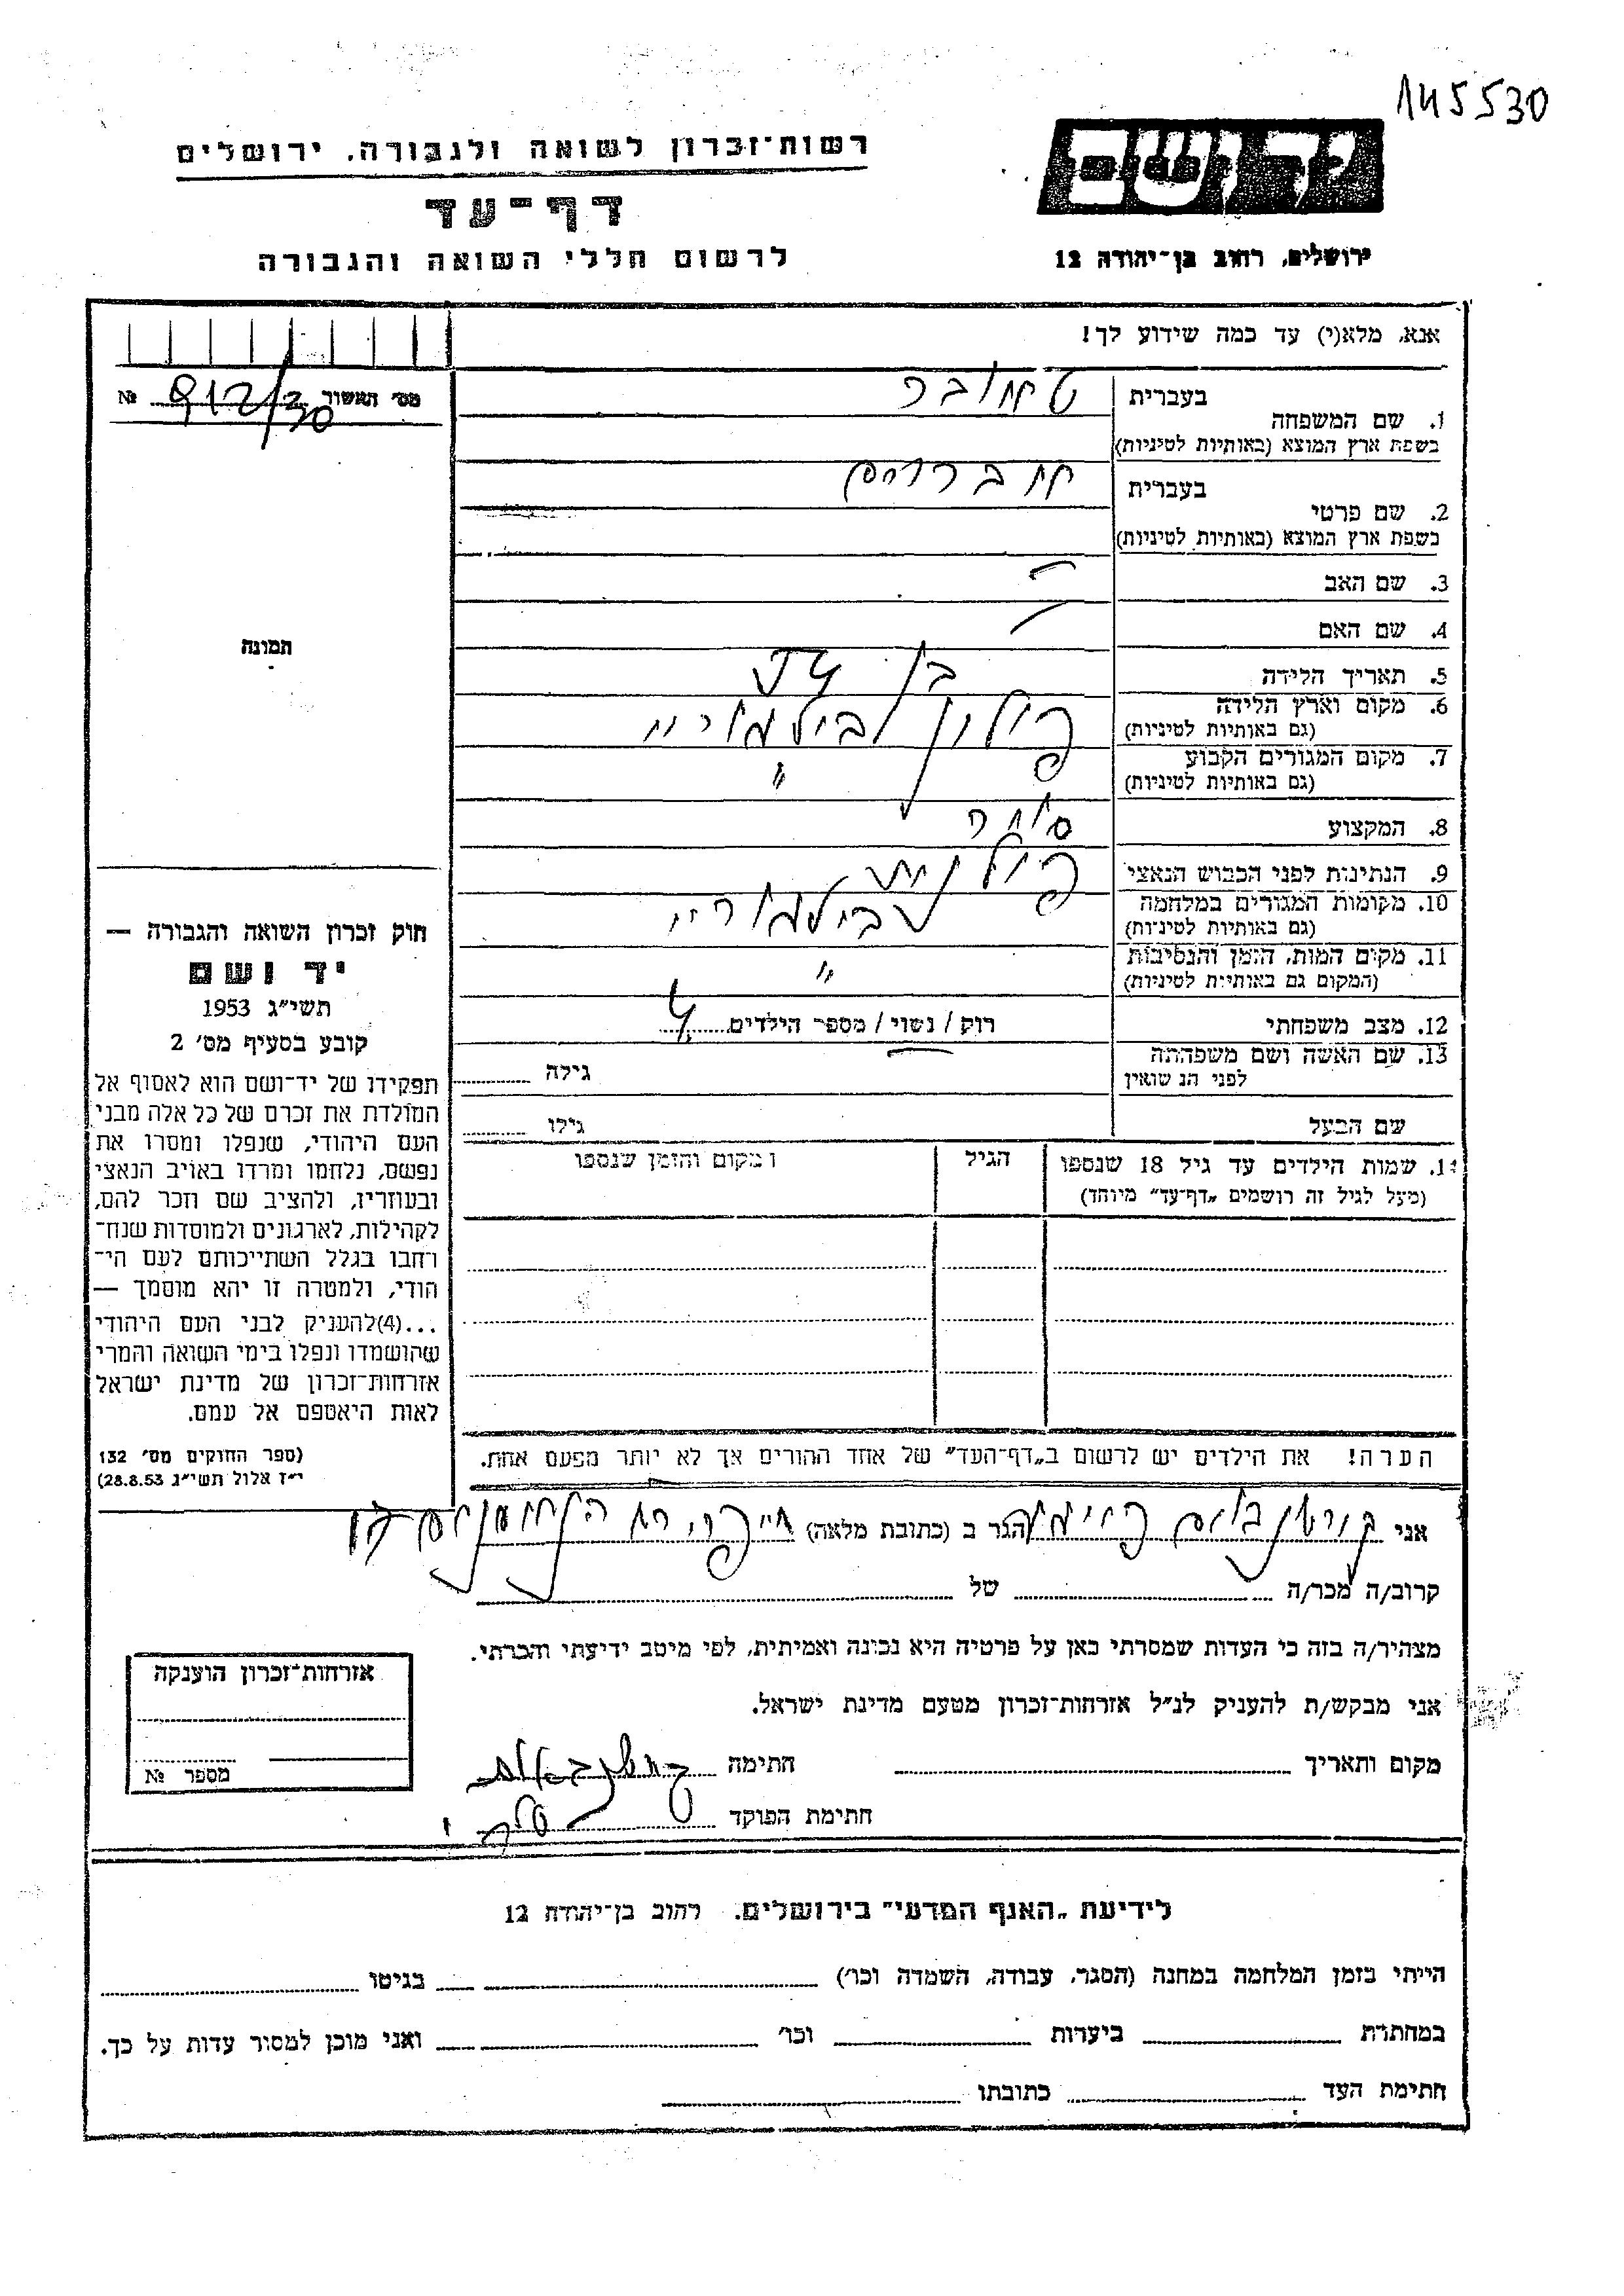 145530
רשות־זכרון לשואה ולגבורה, ירושלים
יד ושם
דף־עד
לרשום חללי השואה והגבורה
ירושלים, רחוב בן־יהודה 12
אנא, מלא(י) עד כמה שידוע לך!
מס׳ האשור № 912/30
1. שם המשפחה
בעברית
בשפת ארץ המוצא (באותיות לטיניות)
2. שם פרטי
בעברית אברהם
בשפת ארץ המוצא (באותיות לטיניות)
3. שם האב —
4. שם האם —
5. תאריך הלידה בן
6. מקום וארץ הלידה פולין
(גם באותיות לטיניות)
7. מקום המגורים הקבוע "
(גם באותיות לטיניות)
8. המקצוע סוחר
9. הנתינות לפני הכבוש הנאצי פולנית
10. מקומות המגורים במלחמה
(גם באותיות לטיניות)
11. מקום המות, הזמן והנסיבות "
(המקום גם באותיות לטיניות)
12. מצב משפחתי רוק / נשוי / מספר הילדים 4
13. שם האשה ושם משפחתה
לפני הנשואין גילה
שם הבעל גילו
14. שמות הילדים עד גיל 18 שנספו
(מעל לגיל זה רושמים „דף־עד" מיוחד)
הגיל
המקום והזמן שנספו
הערה! את הילדים יש לרשום ב„דף־העד" של אחד ההורים אך לא יותר מפעם אחת.
תמונה
חוק זכרון השואה והגבורה —
יד ושם
תשי״ג 1953
קובע בסעיף מס׳ 2
תפקידו של יד־ושם הוא לאסוף אל
המולדת את זכרם של כל אלה מבני
העם היהודי, שנפלו ומסרו את
נפשם, נלחמו ומרדו באויב הנאצי
ובעוזריו, ולהציב שם וזכר להם,
לקהילות, לארגונים ולמוסדות שנח־
רחבו בגלל השתייכותם לעם הי־
הודי, ולמטרה זו יהא מוסמך —
...(4) להעניק לבני העם היהודי
שהושמדו ונפלו בימי השואה והמרי
אזרחות־זכרון של מדינת ישראל
לאות היאספם אל עמם.
(ספר החוקים מס׳ 132
י״ז אלול תשי״ג 28.8.53)
אני הגר ב (כתובת מלאה) חיפה, רח
קרוב/ה מכר/ה של
מצהיר/ה בזה כי העדות שמסרתי כאן על פרטיה היא נכונה ואמיתית, לפי מיטב ידיעתי והכרתי.
אני מבקש/ת להעניק לנ״ל אזרחות־זכרון מטעם מדינת ישראל.
מקום ותאריך חתימה
חתימת הפוקד
אזרחות־זכרון הוענקה
מספר №
לידיעת „האגף המדעי" בירושלים, רחוב בן־יהודה 12
הייתי בזמן המלחמה במחנה (הסגר, עבודה, השמדה וכו׳) בגיטו
במחתרת ביערות וכו׳ ואני מוכן למסור עדות על כך.
חתימת העד כתובתו